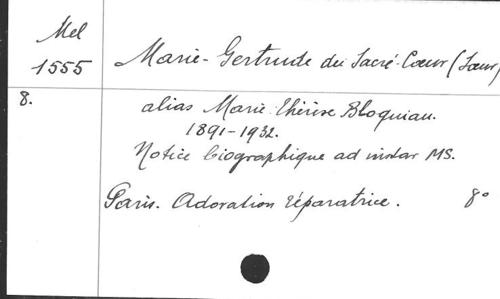 Mel
1555
Marie-Gertrude du Sacré-Cœur (Sœur)
8.
alias Marie Thérèse Bloquiau.
1891-1932.
Notice biographique ad instar MS.
Paris. Adoration réparatrice. 8°